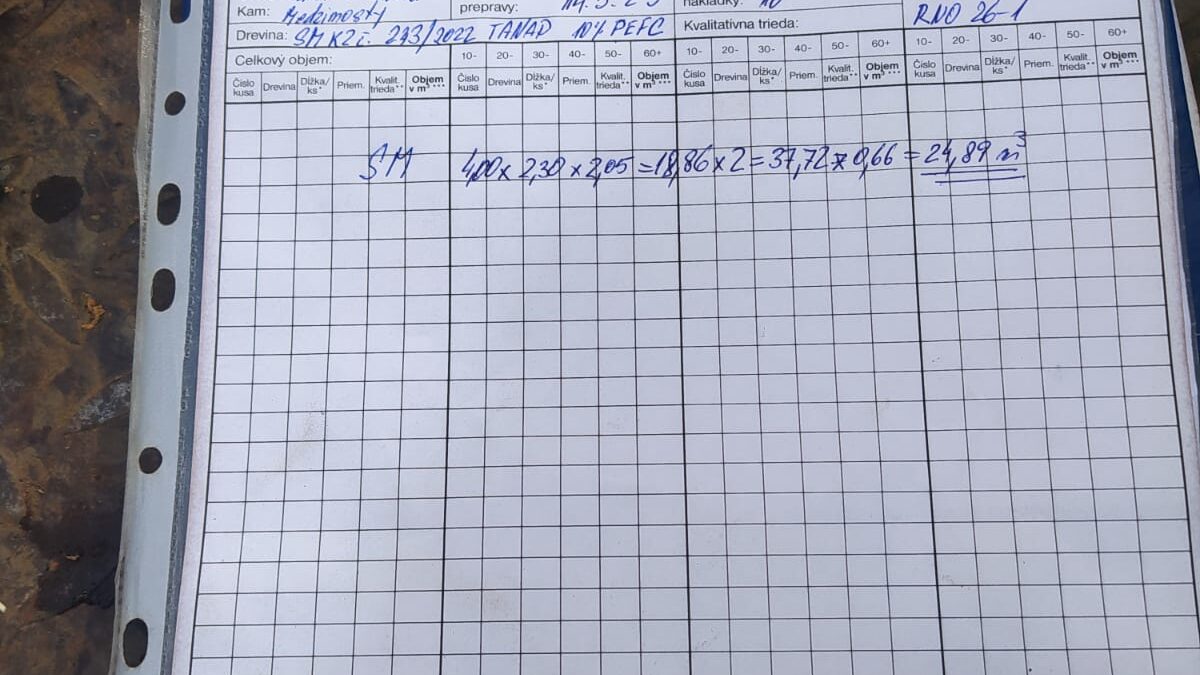 Kam: Medzimosty
prepravy:
nakládky: 10
RNO 26-1
Drevina: SM KZ č. 243/2022 TANAP 10% PEFC
Kvalitatívna trieda:
Celkový objem:
10- 20- 30- 40- 50- 60+ 10- 20- 30- 40- 50- 60+ 10- 20- 30- 40- 50- 60+
Číslo kusa Drevina Dĺžka/ks* Priem. Kvalit. trieda** Objem v m³*** Číslo kusa Drevina Dĺžka/ks* Priem. Kvalit. trieda** Objem v m³*** Číslo kusa Drevina Dĺžka/ks* Priem. Kvalit. trieda** Objem v m³*** Číslo kusa Drevina Dĺžka/ks* Priem. Kvalit. trieda** Objem v m³***
SM 4,00 x 2,30 x 2,05 = 18,86 x 2 = 37,72 x 0,66 = 24,89 m³